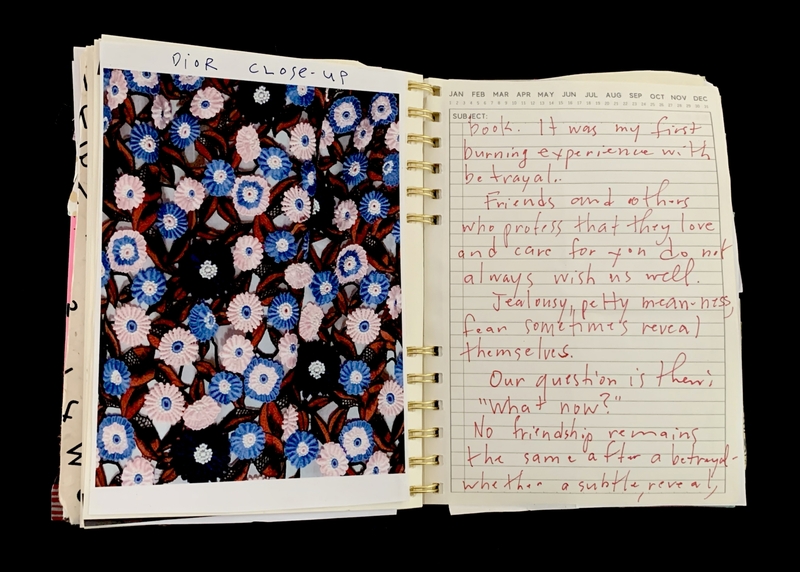 DIOR CLOSE-UP
JAN FEB MAR APR MAY JUN JUL AUG SEP OCT NOV DEC
SUBJECT:
book. It was my first
burning experience with
betrayal..
Friends and others
who profess that they love
and care for you do not
always wish us well.
Jealousy, petty mean-ness,
fear sometimes reveal
themselves.
Our question is then:
"What now?"
No friendship remains
the same after a betrayal-
whether a subtle, reveal,